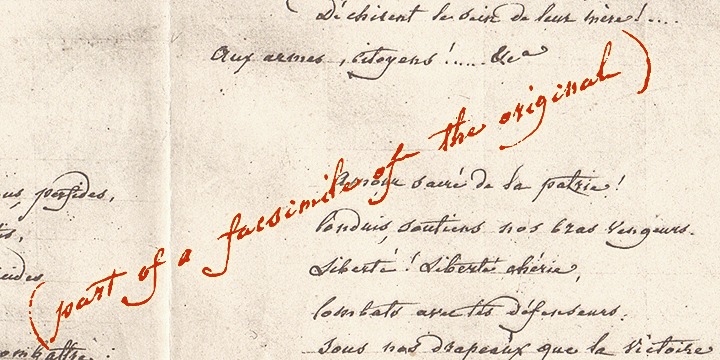 Déchirent le sein de leur mère!....
Aux armes, citoyens!..... &ca
Amour sacré de la patrie!
Conduis, soutiens nos bras vengeurs.
Liberté! Liberté chérie,
Combats avec tes défenseurs.
Sous nos drapeaux que la victoire
perfides,
(part of a facsimile of the original)